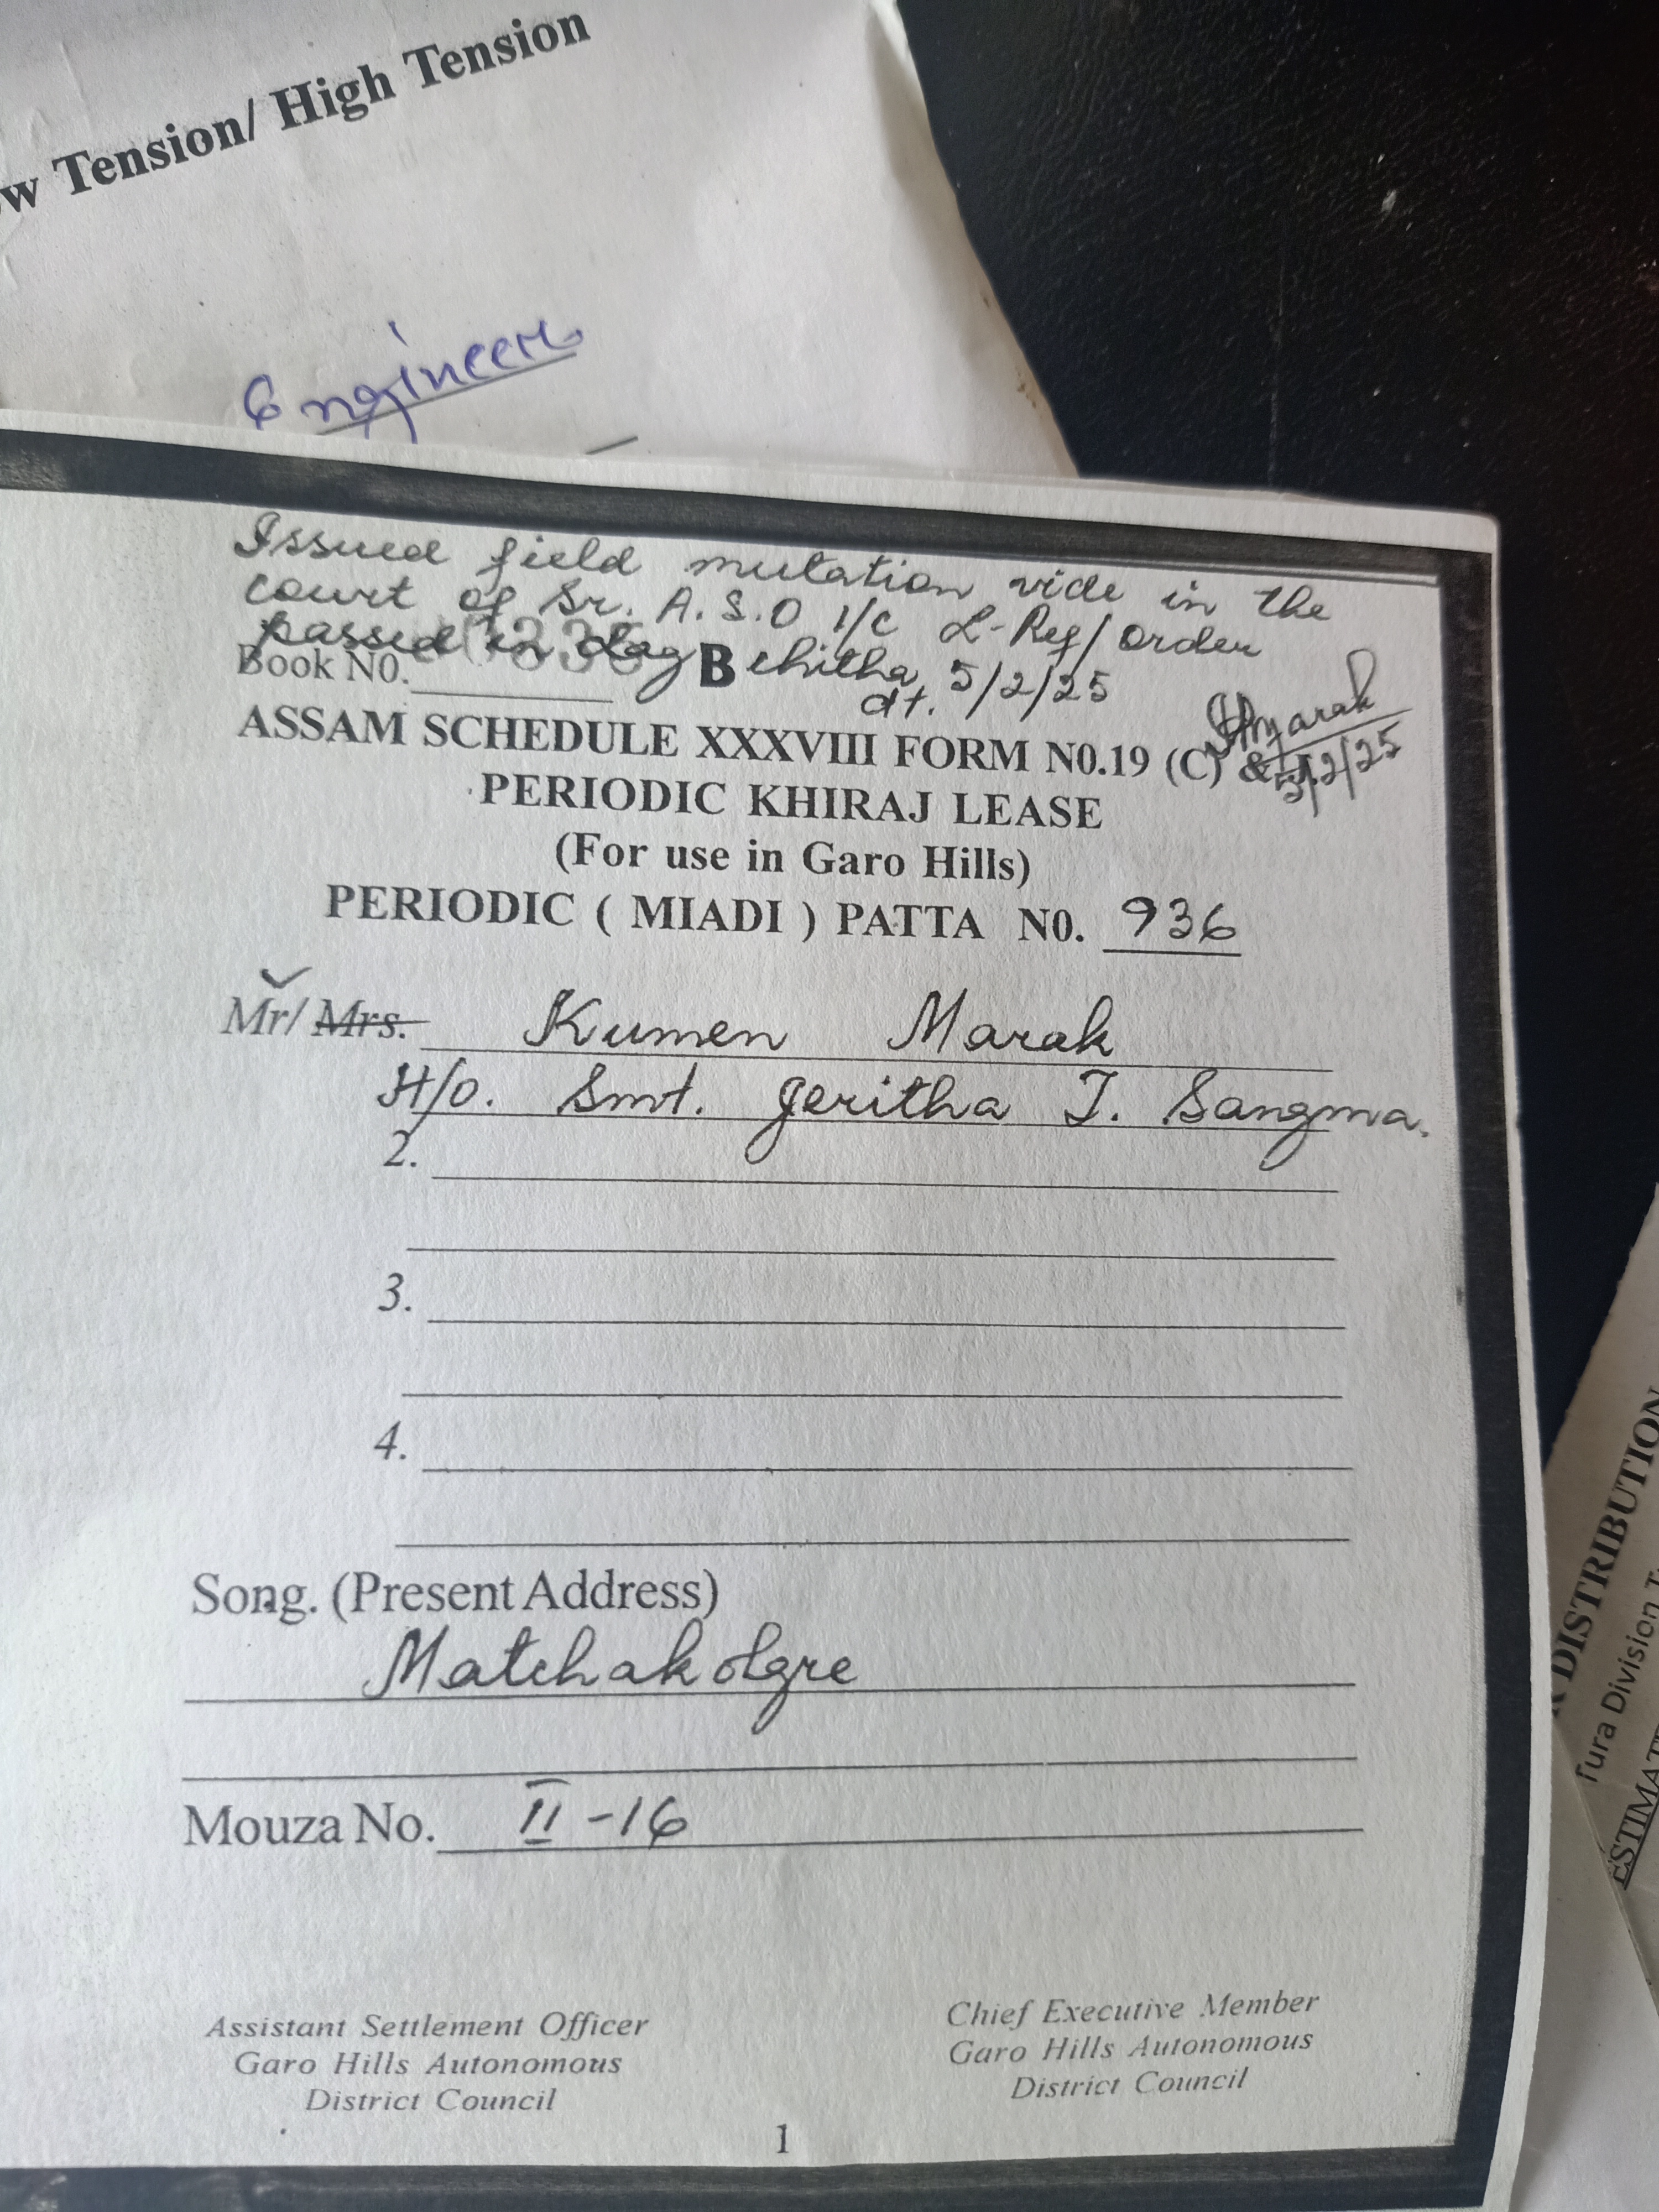 w Tension/ High Tension
Engineer
Issued field mutation vide in the
court of Sr. A.S.O I/C L-Reg/order
passed in dag chitha,
dt. 5/2/25
Book N0. B
Marak
5/2/25
ASSAM SCHEDULE XXXVIII FORM N0.19 (C) &
PERIODIC KHIRAJ LEASE
(For use in Garo Hills)
PERIODIC ( MIADI ) PATTA N0. 936
Mr/ Mrs. Kumen Marak
H/O. Smt. Jeritha T. Sangma.
2.
3.
4.
Song. (Present Address)
Matchakolgre
Mouza No. II -16
Assistant Settlement Officer
Garo Hills Autonomous
District Council
Chief Executive Member
Garo Hills Autonomous
District Council
1
DISTRIBUTION
Tura Division
ESTIMAT